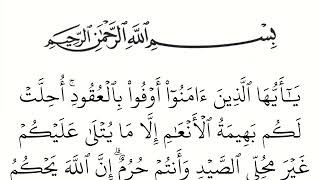 بِسْمِ ٱللَّهِ ٱلرَّحْمَٰنِ ٱلرَّحِيمِ
يَـٰٓأَيُّهَا ٱلَّذِينَ ءَامَنُوٓا۟ أَوْفُوا۟ بِٱلْعُقُودِ ۚ أُحِلَّتْ
لَكُم بَهِيمَةُ ٱلْأَنْعَـٰمِ إِلَّا مَا يُتْلَىٰ عَلَيْكُمْ
غَيْرَ مُحِلِّى ٱلصَّيْدِ وَأَنتُمْ حُرُمٌ ۗ إِنَّ ٱللَّهَ يَحْكُمُ